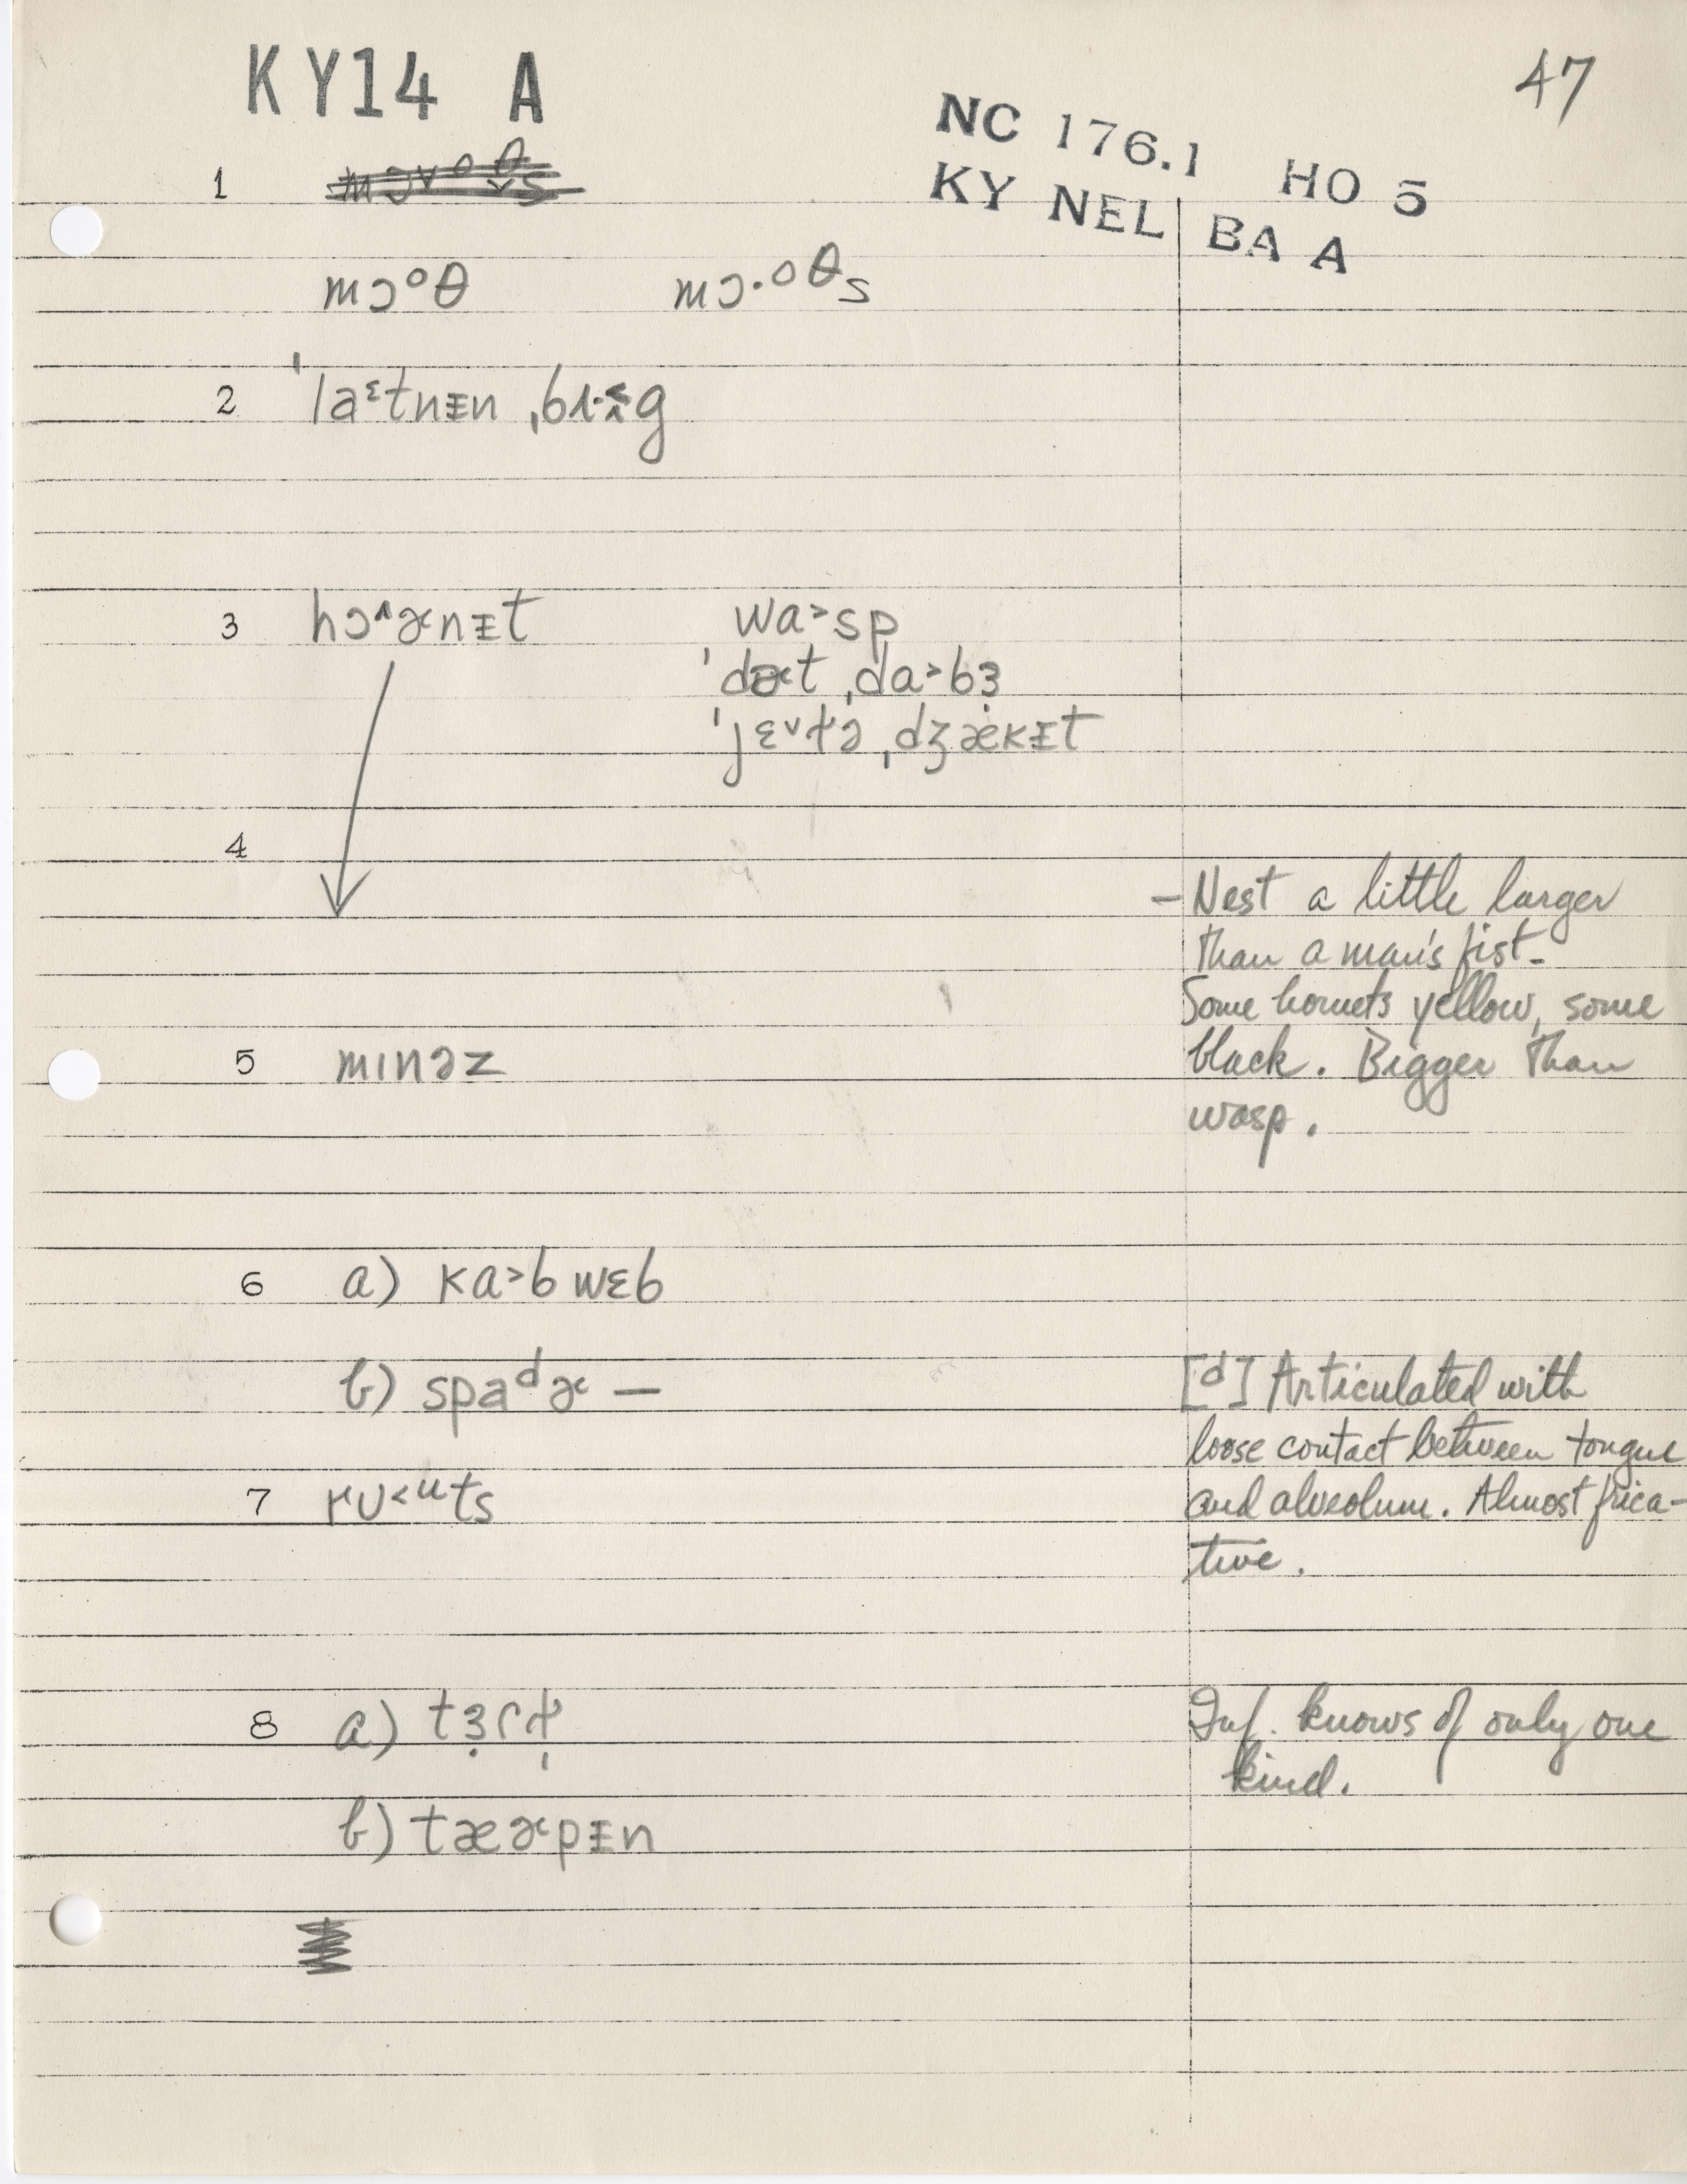 KY14 A
47
NC 176.1 HO 5
KY NEL BA A
1
mɔᵒθ mɔ·ᵒθs
2 ˈlaᵋtnᵻn ˌbɪ·g
3 hɔ˄ɚnᵻt wa˃sp
ˈdɚt ˌda˃bɜ̣
ˈjɛ˅ɫə ˌdʒækᵻt
4
– Nest a little larger
than a man's fist.
Some hornets yellow, some
black. Bigger than
wasp.
5 mɪnəz
6 a) ka˃b wɛb
b) spaᵈɚ —
[ᵈ] Articulated with
loose contact between tongue
and alveolum. Almost frica-
tive.
7 rʊ˂ᵘts
8 a) tɜ̣rɫ̩
Inf. knows of only one
kind.
b) tæɚpᵻn